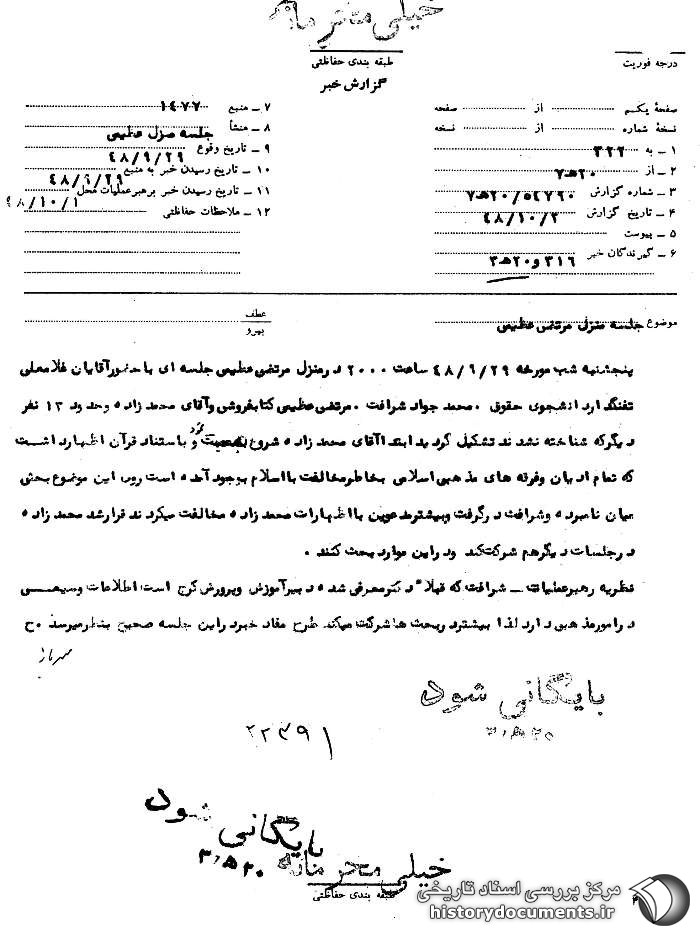 خیلی محرمانه
طبقه بندی حفاظتی
درجه فوریت
گزارش خبر
صفحهٔ یکم از صفحه
نسخهٔ شماره از نسخه
۱ ـ به ۳۲۲
۲ ـ از ۲۰هـ۷
۳ ـ شماره گزارش ۵۴۷۶۰/۲۰هـ۷
۴ ـ تاریخ گزارش ۴۸/۱۰/۲
۵ ـ پیوست
۶ ـ گیرندگان خبر ۳۱۶ و ۲۰هـ۳
۷ ـ منبع ۱۴۷۷
۸ ـ منشأ جلسه منزل عظیمی
۹ ـ تاریخ وقوع ۴۸/۹/۲۹
۱۰ ـ تاریخ رسیدن خبر به منبع ۴۸/۹/۲۹
۱۱ ـ تاریخ رسیدن خبر برهبر عملیات محل ۴۸/۱۰/۱
۱۲ ـ ملاحظات حفاظتی
موضوع جلسه منزل مرتضی عظیمی
عطف
پیرو
پنجشنبه شب مورخه ۴۸/۹/۲۹ ساعت ۲۰۰۰ در منزل مرتضی عظیمی جلسه ای با حضور آقایان غلامعلی
تفنگدار دانشجوی حقوق ، محمد جواد شرافت ، مرتضی عظیمی کتابفروشی و آقای محمد زاده وحدود ۱۳ نفر
دیگر که شناخته نشدند تشکیل گردید ابتدا آقای محمد زاده شروع بصحبت نمود و با استناد قرآن اظهار داشت
که تمام ادیان وفرقه های مذهبی اسلامی بخاطر مخالفت با اسلام بوجود آمده است روی این موضوع بحثی
میان نامبرده وشرافت درگرفت وبیشتر مدعوین با اظهارات محمد زاده مخالفت میکردند قرار شد محمد زاده
در جلسات دیگر هم شرکت کند ودر این موارد بحث کنند .
نظریه رهبر عملیات ــ شرافت که قبلاً دکتر معرفی شده دبیر آموزش وپرورش کرج است اطلاعات وسیعــی
در امور مذهبی دارد لذا بیشتر در بحث ها شرکت میکند طرح مفاد خبر در این جلسه صحیح بنظر میرسد . ح
بایگانی شود
۲۰هـ۳
۲۲۳۹۱
بایگانی شود
۲۰هـ۳
خیلی محرمانه
طبقه بندی حفاظتی
مرکز بررسی اسناد تاریخی
historydocuments.ir